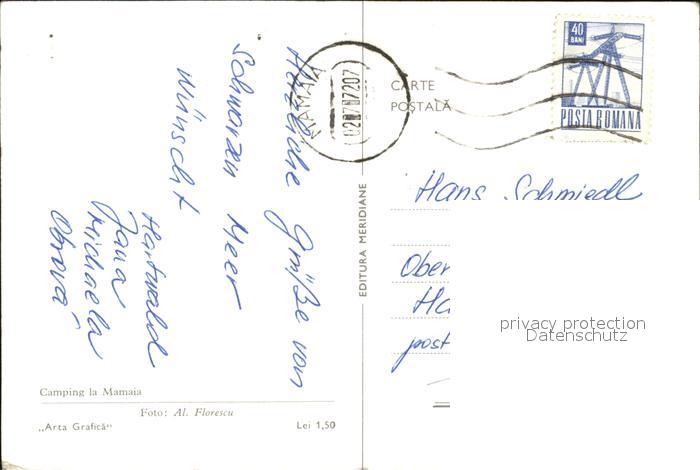 Herzliche Grüße von
Schwarzen Meer
wünscht
Hartwald
Jana
Michaela
Camping la Mamaia
Foto: Al. Florescu
„Arta Grafică“
Lei 1,50
EDITURA MERIDIANE
MAMAIA
CARTE
POȘTALĂ
40
BANI
POSTA ROMANA
Hans Schmiedl
Ober
Ha
post
privacy protection
Datenschutz